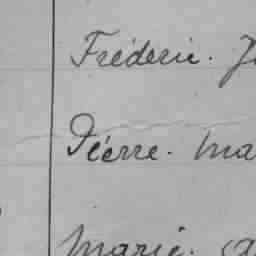 Fréderic. J
Pierre. Ma
Marie. a